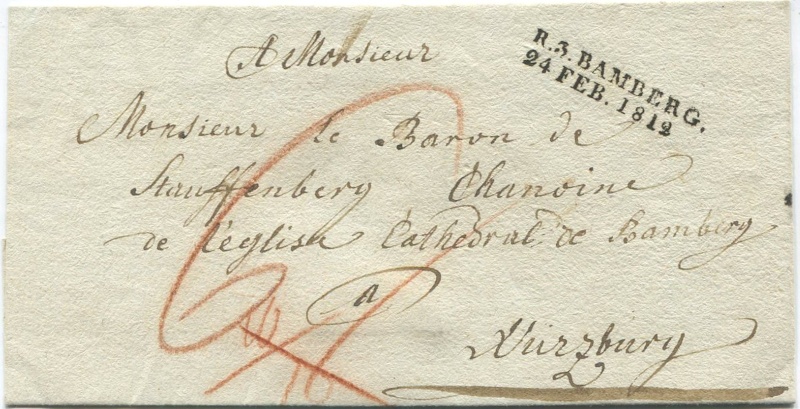 A Monsieur
R.3.BAMBERG.
24 FEB. 1812
Monsieur le Baron de
Stauffenberg Chanoine
de l'église Cathedral de Bamberg
a
Würzburg
6